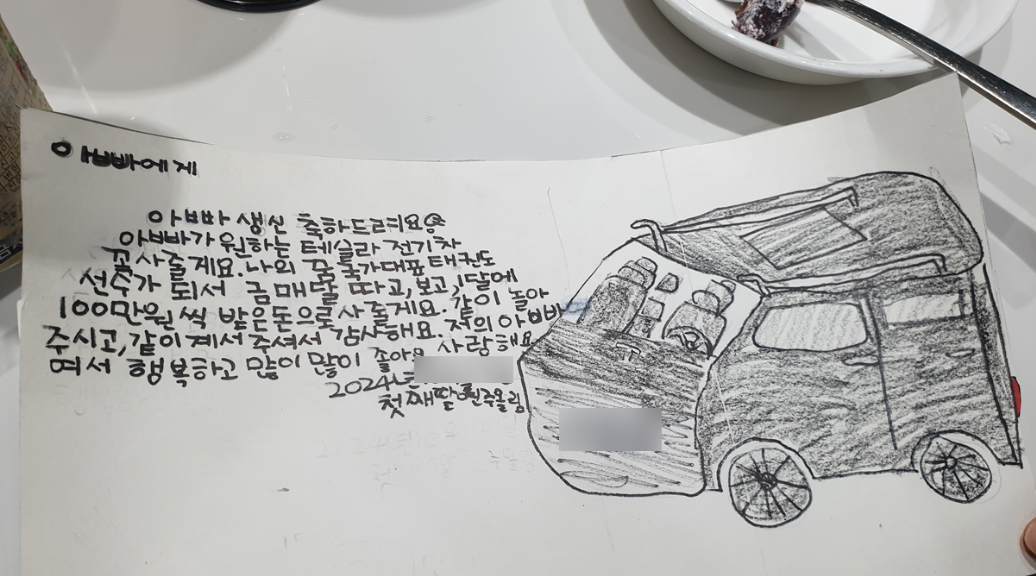 아빠에게
아빠 생신 축하드려요
아빠가 원하는 테슬라 전기차
꼭 사줄게요. 나의 꿈 국가대표 태권도
선수가 되서 금매달 따고, 보고, 1달에
100만원씩 받은돈으로 사줄게요. 같이 놀아
주시고, 같이 계서 주셔서 감사해요. 저의 아빠
여서 행복하고 많이 많이 좋아요 사랑해요
2024년
첫째딸 올림